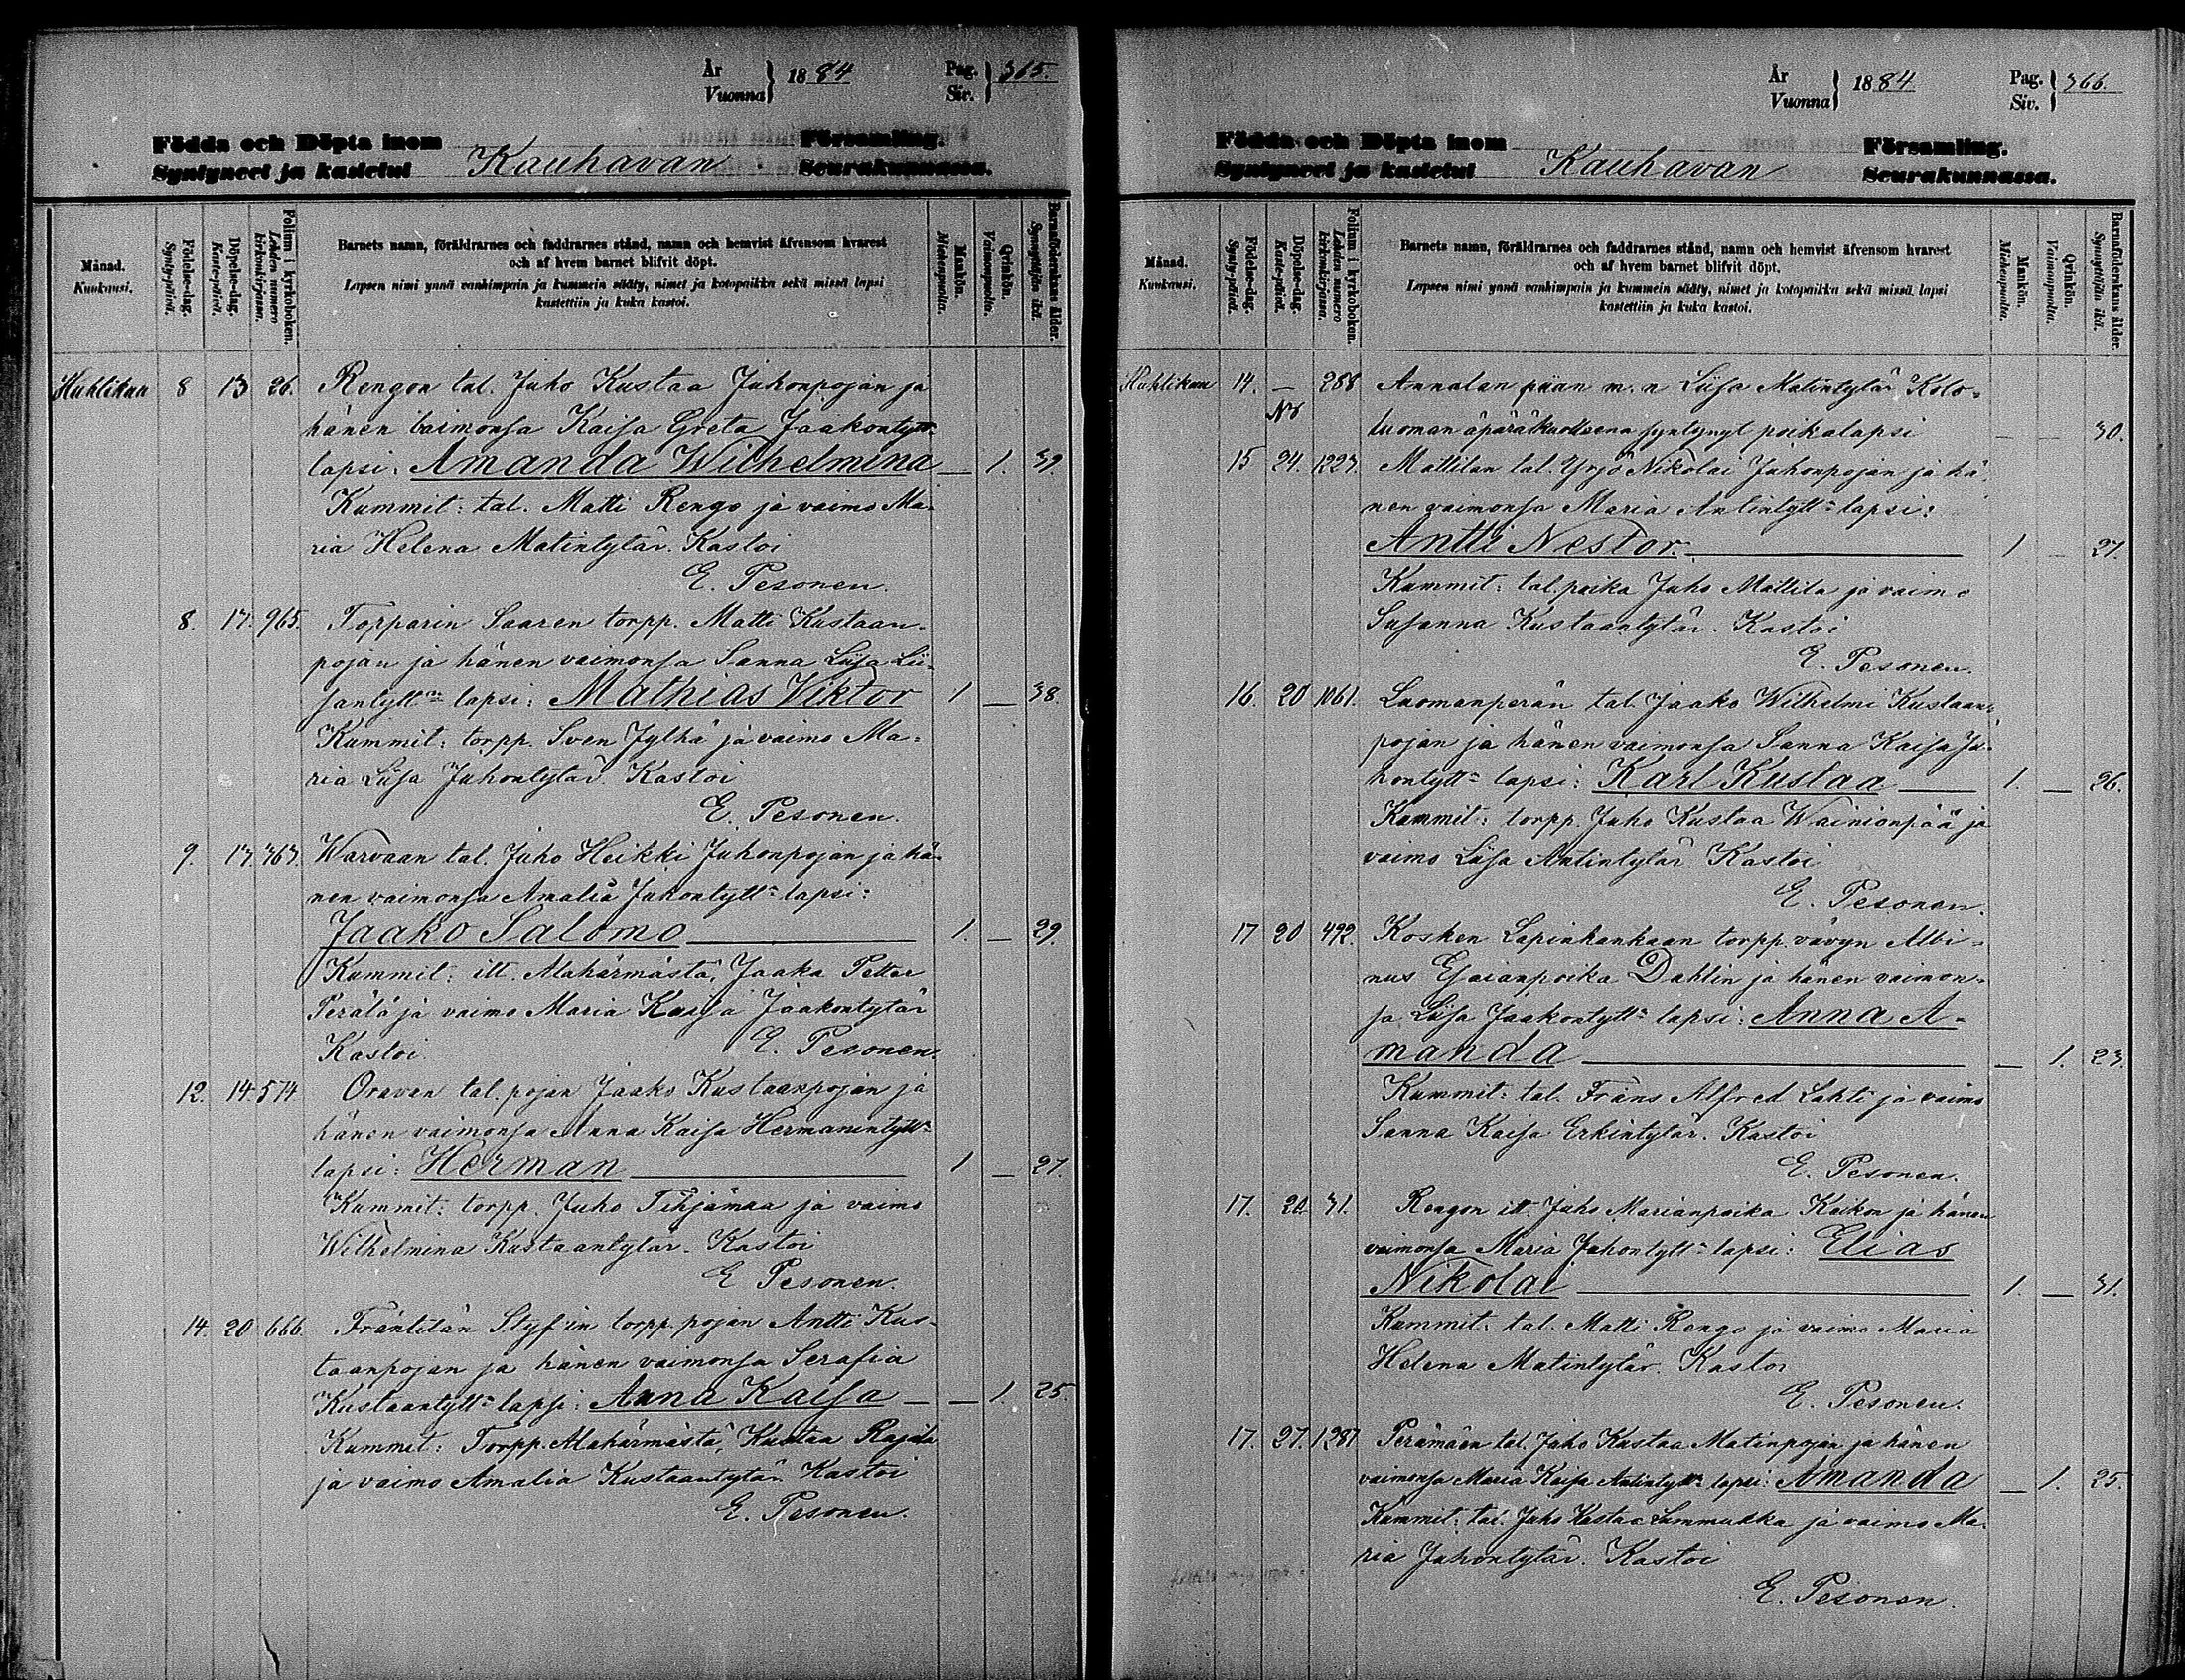 År
Vuonna } 1884
Pag.
Siv. } 365.
Födda och Döpta inom
Syntyneet ja kastetut Kauhavan
Församling.
Seurakunnassa.
Månad.
Kuukausi.
Födelse-dag.
Synty-päivä.
Döpelse-dag.
Kaste-päivä.
Folium i kyrkoboken.
Lehden numero kirkonkirjassa.
Barnets namn, föräldrarnes och faddrarnes stånd, namn och hemvist äfvensom hvarest
och af hvem barnet blifvit döpt.
Lapsen nimi ynnä vanhimpain ja kummein sääty, nimet ja kotopaikka sekä missä lapsi
kastettiin ja kuka kastoi.
Mankön.
Miehenpuolta.
Qvinkön.
Vaimonpuolta.
Barnaföderskans ålder.
Synnyttäjän ikä.
Huhtikuu 8 13 26. Rengon tal. Juho Kustaa Juhonpojan ja
hänen vaimonsa Kaisa Greta Jaakontytt:
lapsi: Amanda Wilhelmina — 1. 39.
Kummit: tal. Matti Rengo ja vaimo Ma-
ria Helena Matintytär. Kastoi
E. Pesonen.
8. 17. 965. Topparin Saaren torpp. Matti Kustaan-
pojan ja hänen vaimonsa Sanna Liisa Lii-
santytt:n lapsi: Mathias Viktor 1 — 38.
Kummit: torpp. Sven Jylhä ja vaimo Ma-
ria Liisa Juhontytär. Kastoi
E. Pesonen.
9. 13. 363. Warvaan tal. Juho Heikki Juhonpojan ja hä-
nen vaimonsa Amalia Juhontytt:n lapsi:
Jaako Salomo 1. — 29.
Kummit: itt. Alahärmästä, Jaaka Petter
Perälä ja vaimo Maria Kaisa Jaakontytär
Kastoi E. Pesonen.
12. 14. 574 Oravan tal. pojan Jaako Kustaanpojan ja
hänen vaimonsa Anna Kaisa Hermanintytt:n
lapsi: Herman 1 — 27.
Kummit: torpp. Juho Tihjämaa ja vaimo
Wilhelmina Kustaantytär. Kastoi
E Pesonen.
14. 20 666. Fräntilän Styf'in torpp. pojan Antti Kus-
taanpojan ja hänen vaimonsa Serafia
Kustaantytt:n lapsi: Anna Kaisa — 1. 25.
Kummit: Torpp. Alahärmästä, Kustaa Rajala
ja vaimo Amalia Kustaantytär. Kastoi
E. Pesonen.
År
Vuonna } 1884
Pag.
Siv. } 366.
Födda och Döpta inom
Syntyneet ja kastetut Kauhavan
Församling.
Seurakunnassa.
Månad.
Kuukausi.
Födelse-dag.
Synty-päivä.
Döpelse-dag.
Kaste-päivä.
Folium i kyrkoboken.
Lehden numero kirkonkirjassa.
Barnets namn, föräldrarnes och faddrarnes stånd, namn och hemvist äfvensom hvarest
och af hvem barnet blifvit döpt.
Lapsen nimi ynnä vanhimpain ja kummein sääty, nimet ja kotopaikka sekä missä lapsi
kastettiin ja kuka kastoi.
Mankön.
Miehenpuolta.
Qvinkön.
Vaimonpuolta.
Barnaföderskans ålder.
Synnyttäjän ikä.
Huhtikuu 14. — 288 Annalan piian m. n Liisa Matintytär Kolo-
luoman äpärä kuolleena syntynyt poikalapsi — — 30.
15 24. 1223. Mattilan tal. Yrjö Nikolai Juhonpojan ja hä-
nen vaimonsa Maria Antintytt:n lapsi:
Antti Nestor. 1 — 27.
Kummit: tal. poika Juho Mattila ja vaimo
Susanna Kustaantytär. Kastoi
E. Pesonen.
16. 20 1061. Luomanperän tal. Jaako Wilhelmi Kustaan-
pojan ja hänen vaimonsa Sanna Kaisa Ju-
hontytt:n lapsi: Karl Kustaa 1. — 26.
Kummit: torpp. Juho Kustaa Wainionpää ja
vaimo Liisa Antintytär Kastoi
E. Pesonen.
17 20 492. Kosken Lapinkankaan torpp. vävyn Albi-
nus Esaianpoika Dahlin ja hänen vaimon-
sa Liisa Jaakontytt:n lapsi: Anna A-
manda — 1. 23.
Kummit: tal. Frans Alfred Lahti ja vaimo
Sanna Kaisa Erkintytär. Kastoi
E. Pesonen.
17. 20. 31. Rengon itt. Juho Marianpoika Keikon ja hänen
vaimonsa Maria Juhontytt:n lapsi: Elias
Nikolai 1. — 31.
Kummit: tal. Matti Rengo ja vaimo Maria
Helena Matintytär. Kastoi
E. Pesonen.
17. 27. 1287 Perämäen tal. Juho Kustaa Matinpojan ja hänen
vaimonsa Maria Kaisa Antintytt:n lapsi: Amanda — 1. 25.
Kummit: tal. Juho Kustaa Lammukka ja vaimo Ma-
ria Juhontytär. Kastoi
E. Pesonen.